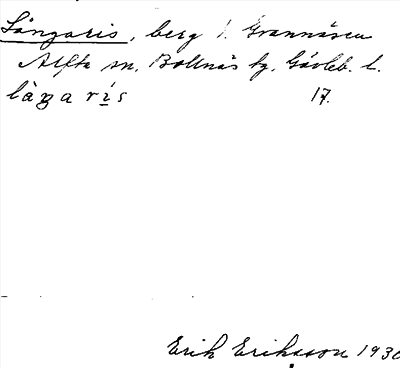 Långaris, berg i. Grannäsen
Alfta sn. Bollnäs tg. Gävleb. l.
làŋarís 17.
Erik Eriksson 1930